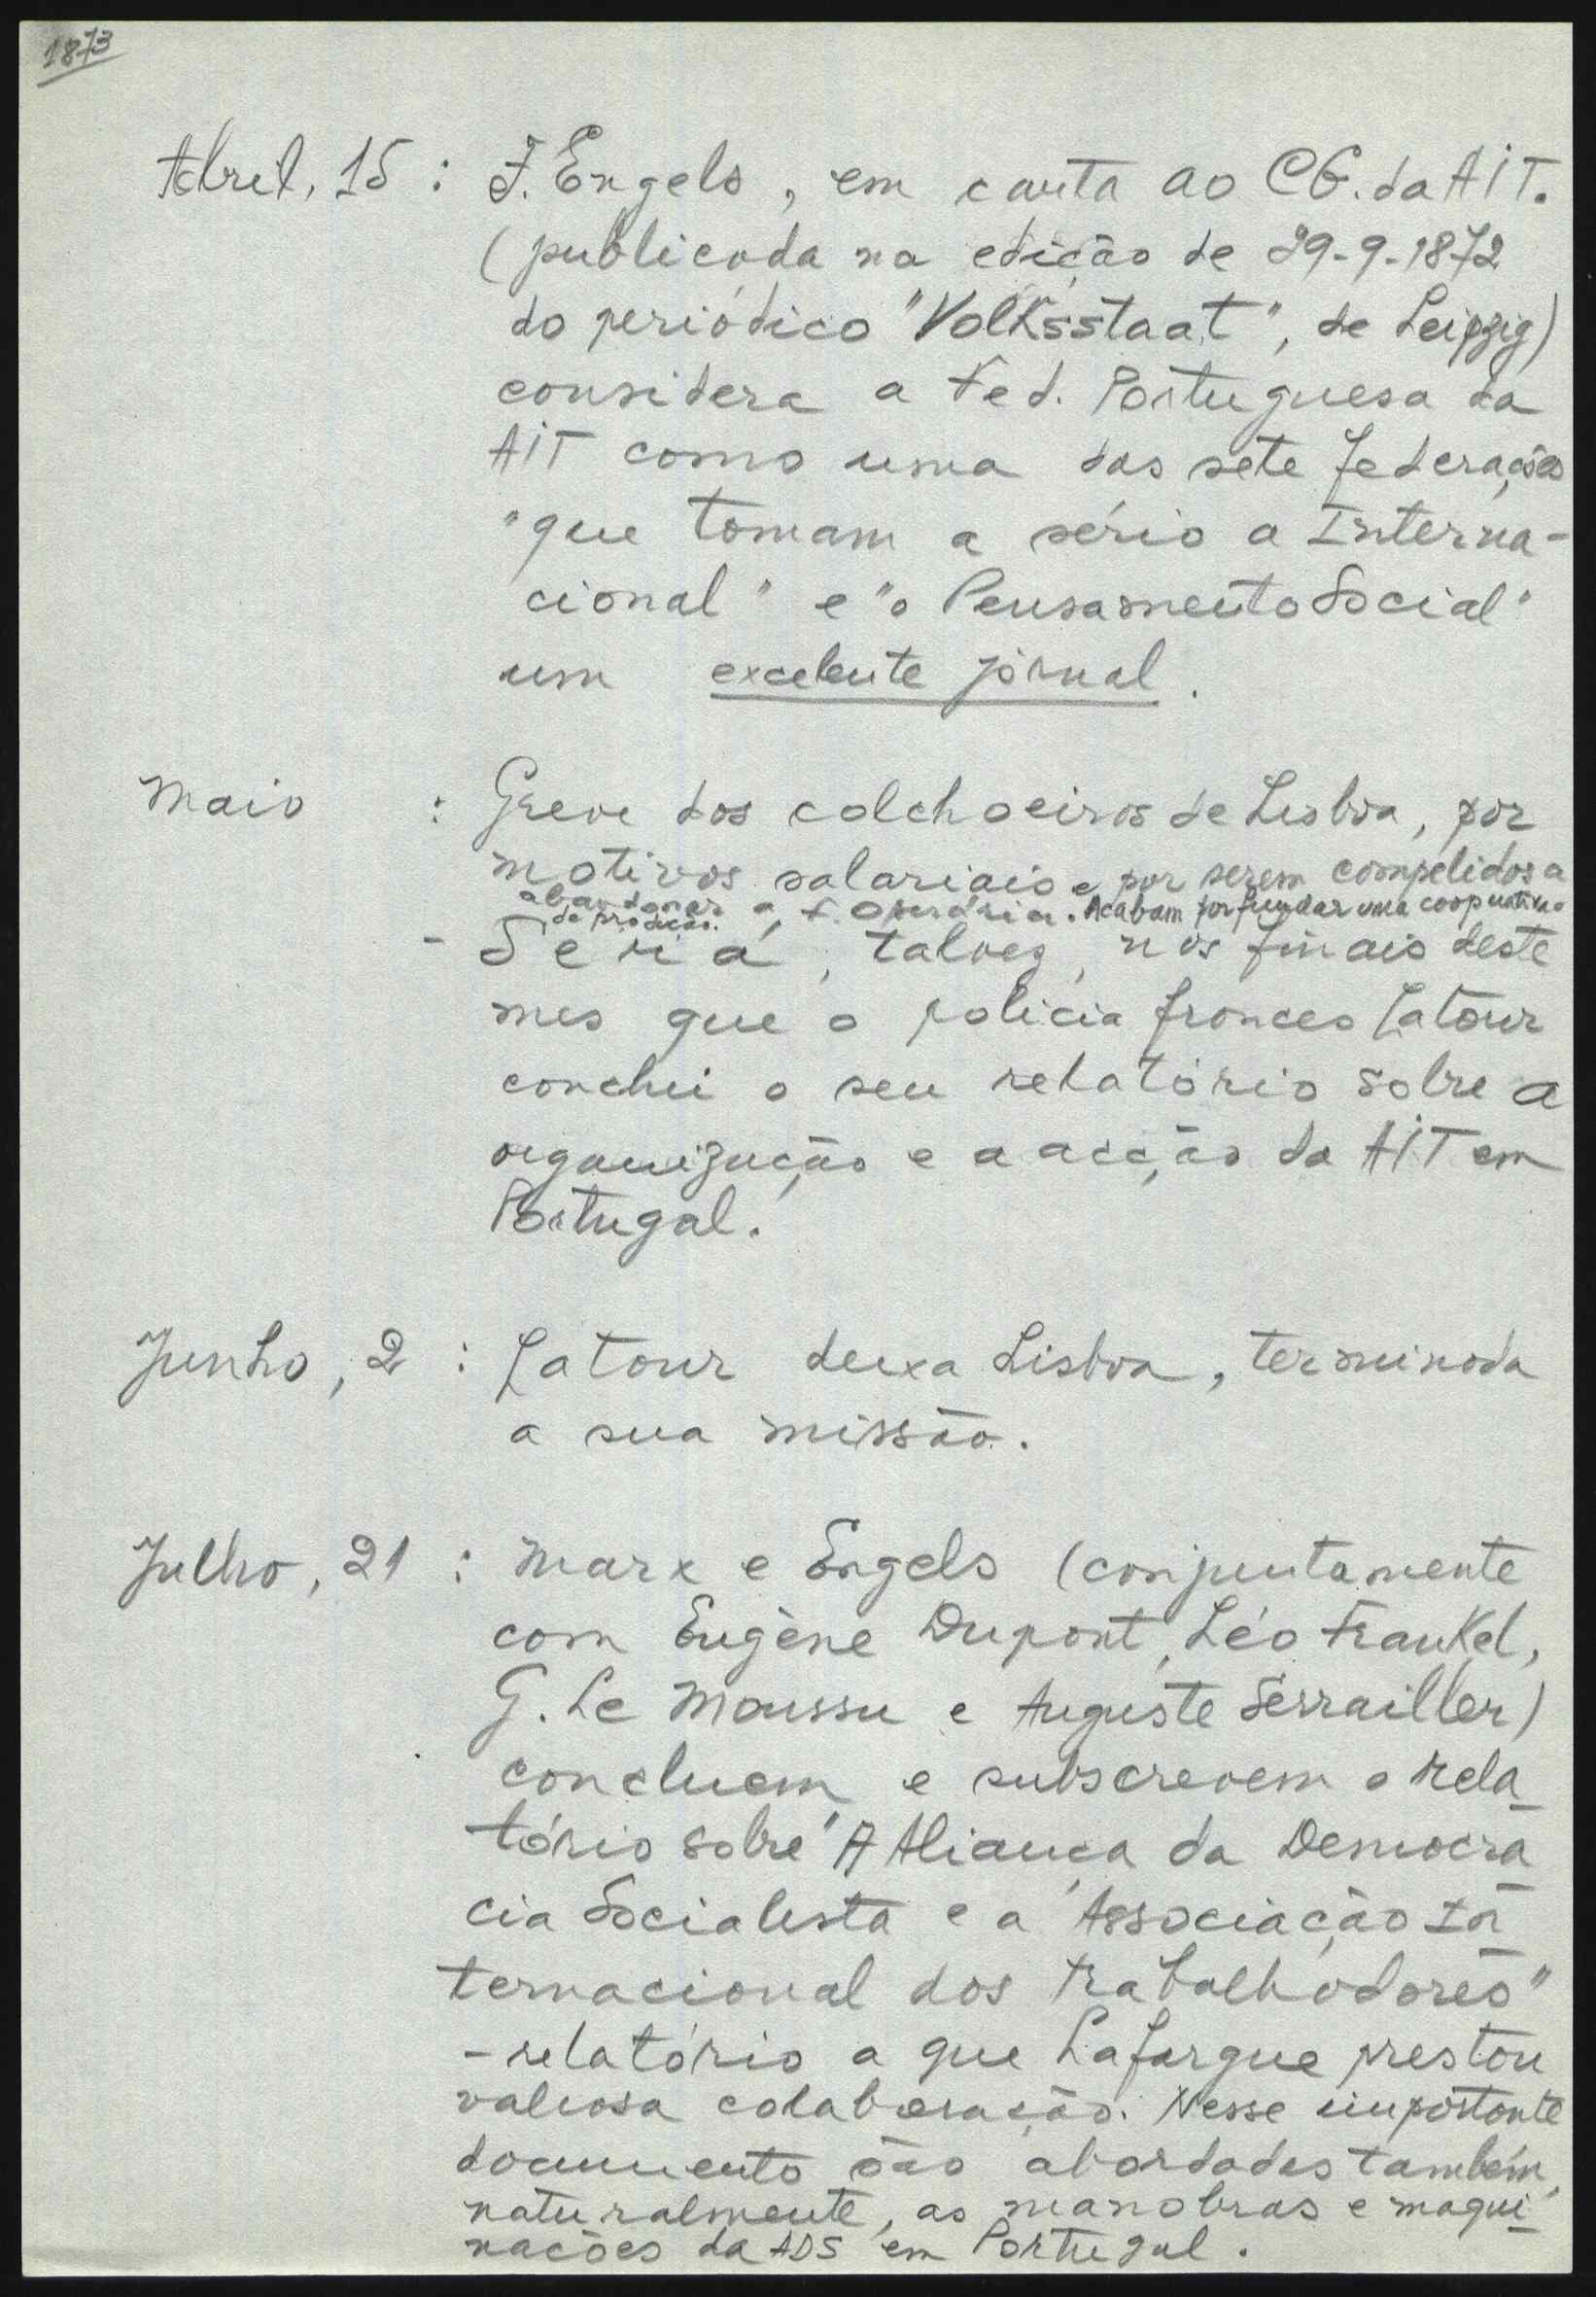 1873
Abril, 15 : F. Engels, em carta ao CG. da AIT.
(publicada na edição de 29-9-1872
do periódico "Volksstaat", de Leipzig)
considera a Fed. Portuguesa da
AIT como uma das sete federações
"que tomam a sério a Interna-
cional" e "o Pensamento Social"
um excelente jornal.
Maio : Greve dos colchoeiros de Lisboa, por
motivos salariais e por serem compelidos a
abandonar a F. Operária. Acabam por fundar uma cooperativa
de produção.
- Seria, talvez, nos finais deste
mes que o policia frances Latour
conclui o seu relatório sobre a
organização e a acção da AIT em
Portugal.
Junho, 2 : Latour deixa Lisboa, terminada
a sua missão.
Julho, 21 : Marx e Engels (conjuntamente
com Eugène Dupont, Léo Frankel,
G. Le Moussu e Auguste Serrailler)
concluem e subscrevem o rela-
tório sobre "A Aliança da Democra
cia Socialista e a Associação In
ternacional dos Trabalhadores"
- relatório a que Lafargue prestou
valiosa colaboração. Nesse importante
documento são abordadas também,
naturalmente, as manobras e maqui-
nações da ADS em Portugal.